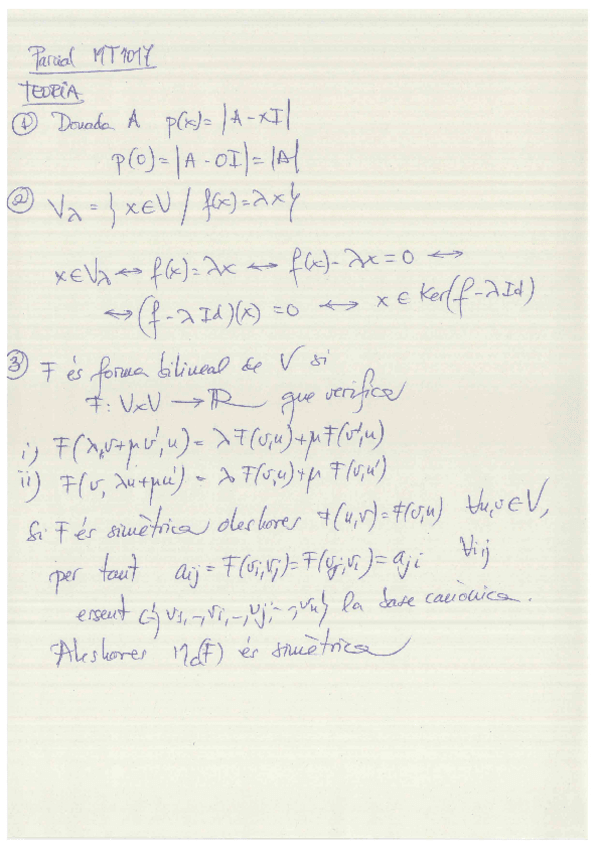 Parcial MT1017
TEORÍA
① Donada A p(x)=|A-xI|
p(0)=|A-0I|=|A|
② Vλ = { x∈V / f(x)=λx }
x∈Vλ ↔ f(x)=λx ↔ f(x)-λx=0 ↔
↔ (f-λId)(x)=0 ↔ x∈Ker(f-λId)
③ F és forma bilineal de V si
F: VxV → ℝ que verifica
i) F(λv+μv',u)=λF(v,u)+μF(v',u)
ii) F(v,λu+μu')=λF(v,u)+μF(v,u')
Si F és simètrica aleshores F(u,v)=F(v,u) ∀u,v∈V,
per tant aij=F(vi,vj)=F(vj,vi)=aji ∀i,j
essent C={v1,-,vi,-,vj,-,vn} la base canònica.
Aleshores Mc(F) és simètrica